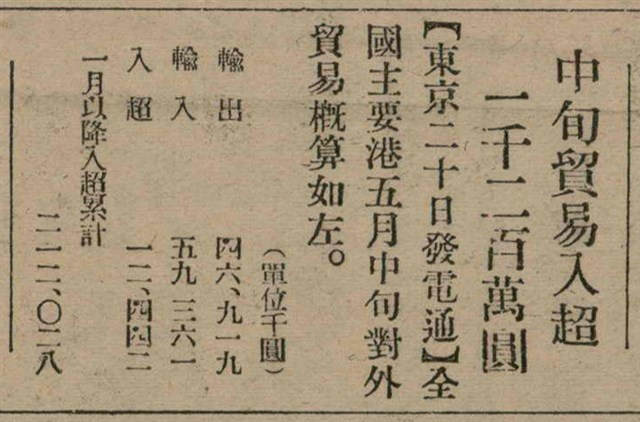 中旬貿易入超
一千二百萬圓
【東京二十日發電通】全
國主要港五月中旬對外
貿易概算如左。
(單位千圓)
輸出 四六、九一九
輸入 五九、三六一
入超 一二、四四二
一月以降入超累計
二一二、〇二八